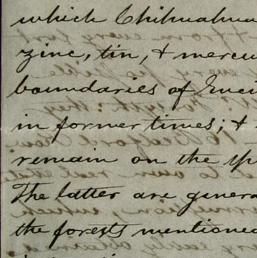 which Chihuahua
zinc, tin, & mercu
boundaries of
in former times; &
remain on the
The latter are genera
the forests mentioned